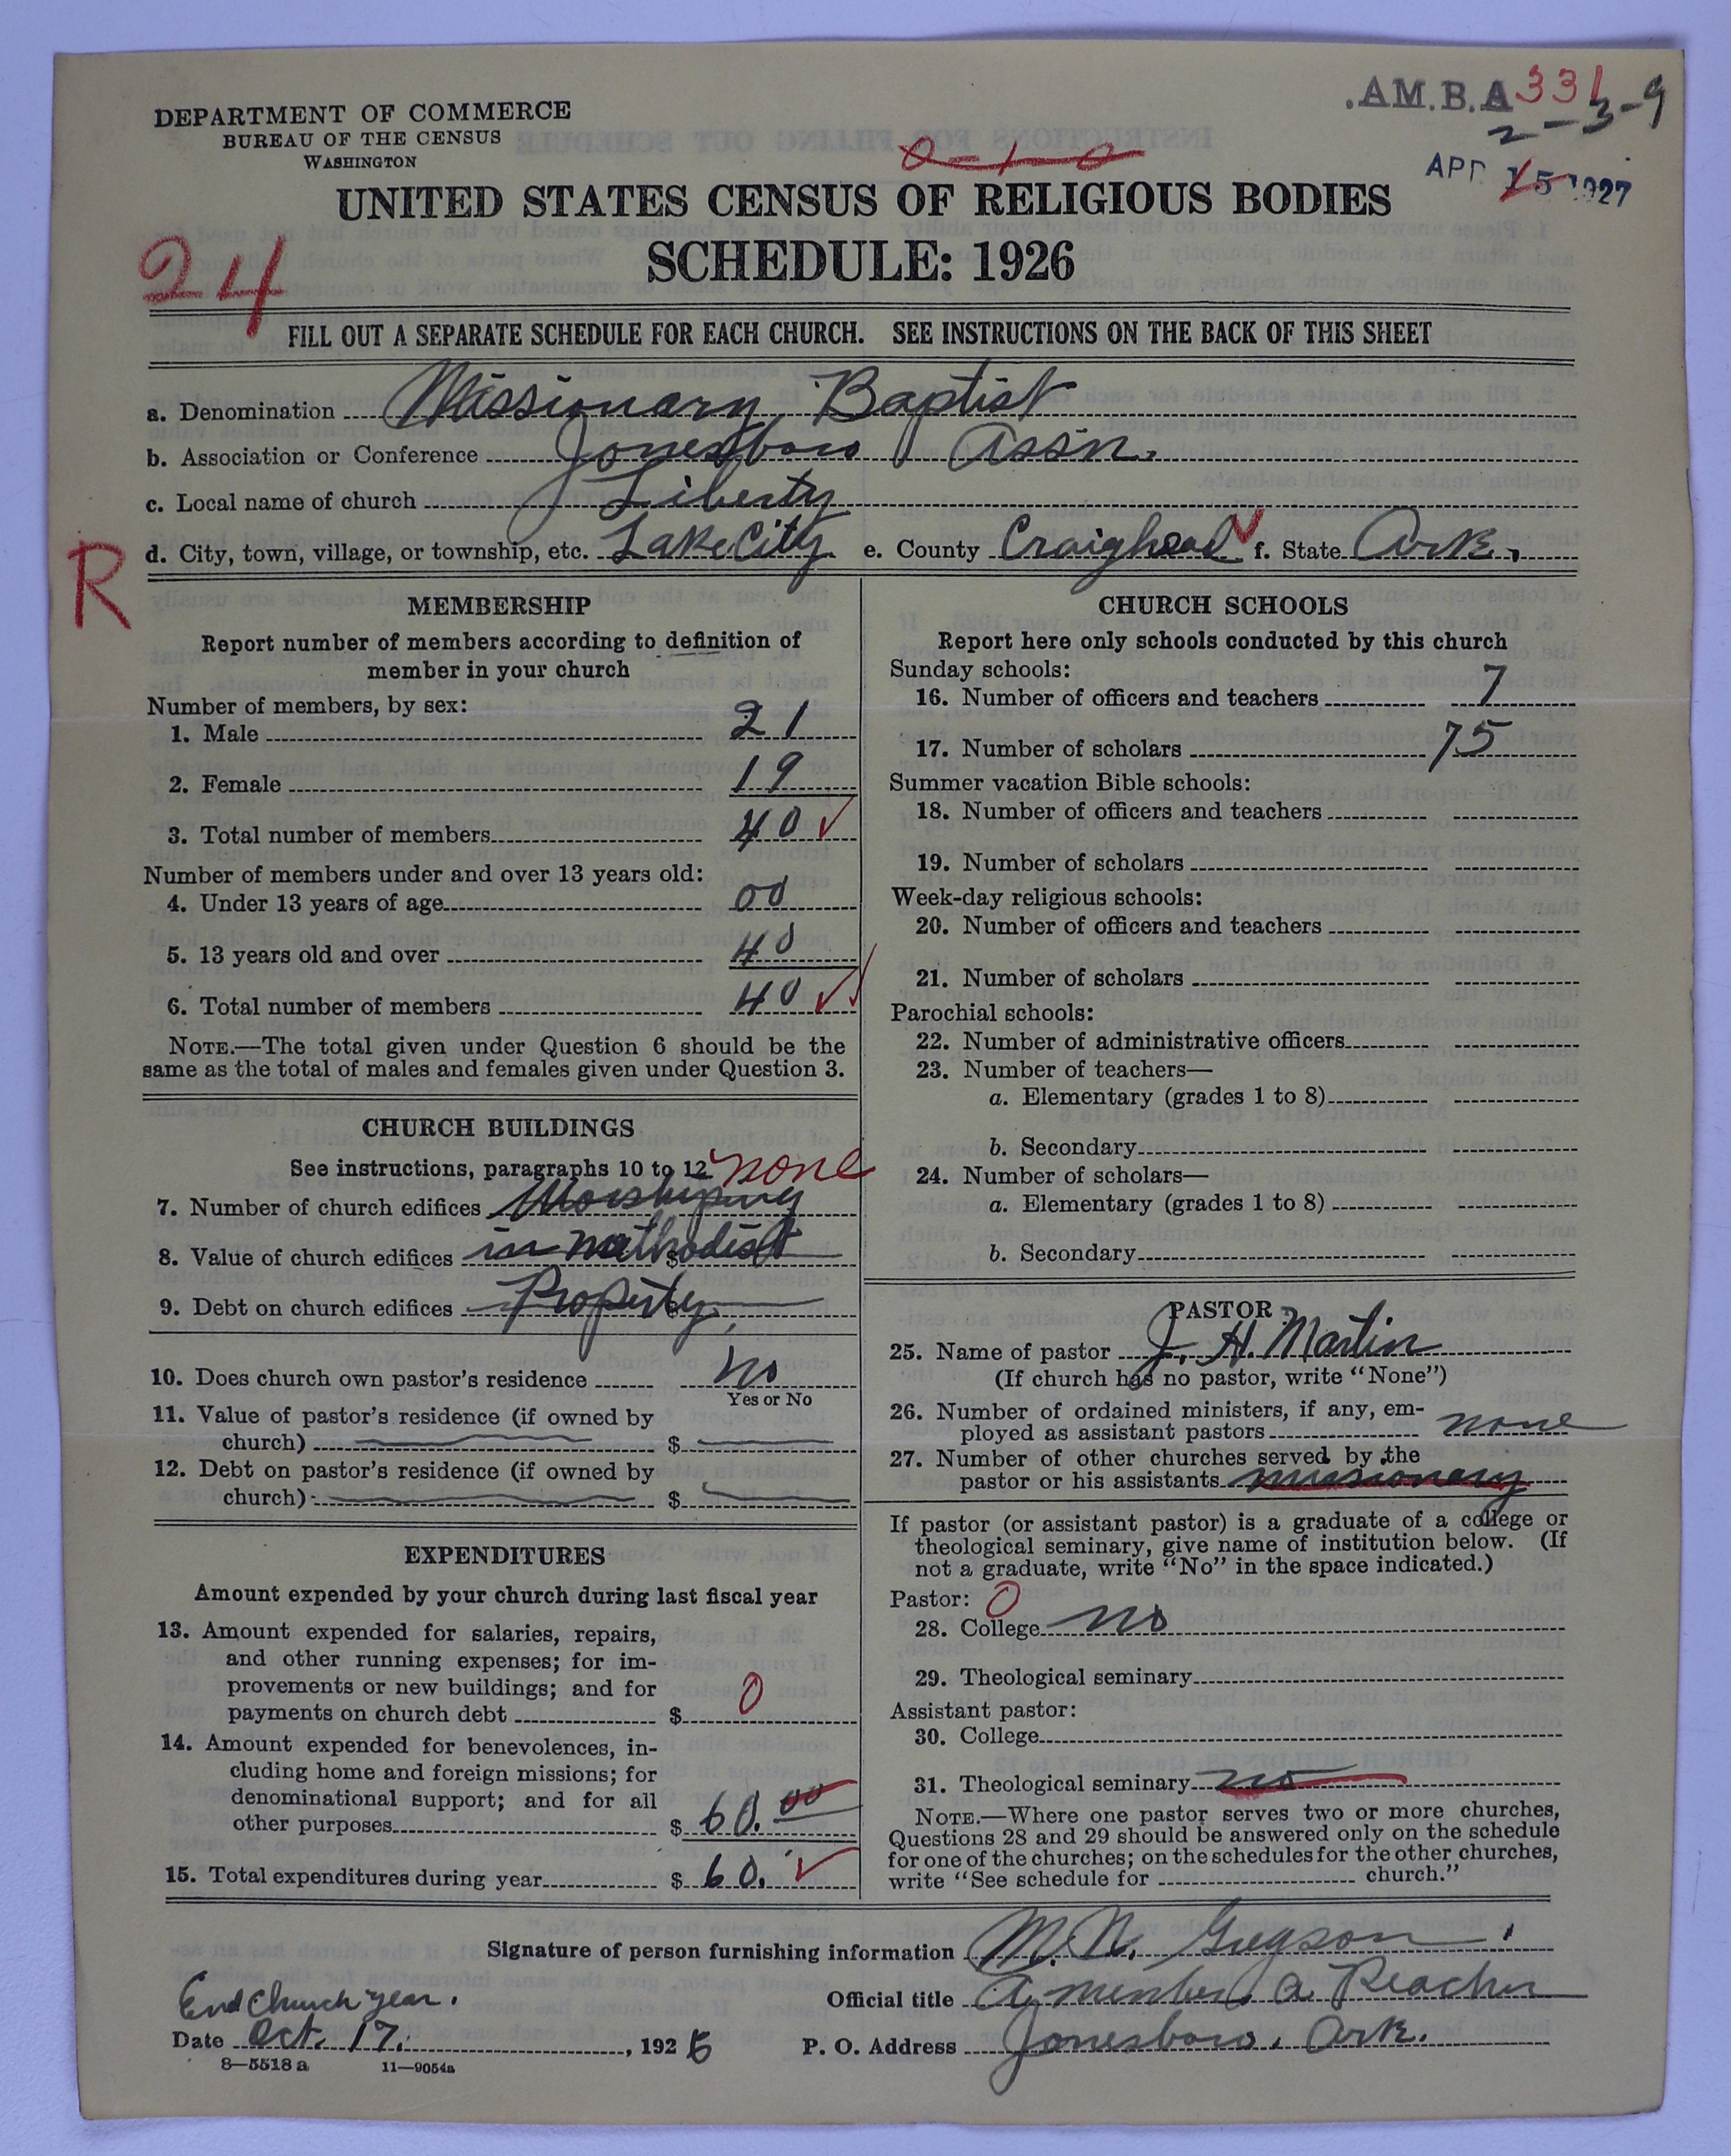 .A.M.B.A 331
2-3-9
DEPARTMENT OF COMMERCE
BUREAU OF THE CENSUS
WASHINGTON
0-1-0
APR 15 1927
UNITED STATES CENSUS OF RELIGIOUS BODIES
SCHEDULE: 1926
24
FILL OUT A SEPARATE SCHEDULE FOR EACH CHURCH. SEE INSTRUCTIONS ON THE BACK OF THIS SHEET
a. Denomination Missionary Baptist
b. Association or Conference Jonesboro Assn.
c. Local name of church Liberty
d. City, town, village, or township, etc. Lake City e. County Craighead f. State Ark.
R
MEMBERSHIP
Report number of members according to definition of
member in your church
Number of members, by sex:
1. Male 21
2. Female 19
3. Total number of members 40
Number of members under and over 13 years old:
4. Under 13 years of age 00
5. 13 years old and over 40
6. Total number of members 40
NOTE.—The total given under Question 6 should be the
same as the total of males and females given under Question 3.
CHURCH BUILDINGS
See instructions, paragraphs 10 to 12 none
7. Number of church edifices Worshiping
8. Value of church edifices in Methodist $
9. Debt on church edifices Property. $
10. Does church own pastor's residence no
Yes or No
11. Value of pastor's residence (if owned by
church) $
12. Debt on pastor's residence (if owned by
church) $
EXPENDITURES
Amount expended by your church during last fiscal year
13. Amount expended for salaries, repairs,
and other running expenses; for im-
provements or new buildings; and for
payments on church debt $ 0
14. Amount expended for benevolences, in-
cluding home and foreign missions; for
denominational support; and for all
other purposes $ 60.00
15. Total expenditures during year $ 60.
CHURCH SCHOOLS
Report here only schools conducted by this church
Sunday schools:
16. Number of officers and teachers 7
17. Number of scholars 75
Summer vacation Bible schools:
18. Number of officers and teachers
19. Number of scholars
Week-day religious schools:
20. Number of officers and teachers
21. Number of scholars
Parochial schools:
22. Number of administrative officers
23. Number of teachers—
a. Elementary (grades 1 to 8)
b. Secondary
24. Number of scholars—
a. Elementary (grades 1 to 8)
b. Secondary
PASTOR
25. Name of pastor J. H. Martin
(If church has no pastor, write "None")
26. Number of ordained ministers, if any, em-
ployed as assistant pastors none
27. Number of other churches served by the
pastor or his assistants missionary
If pastor (or assistant pastor) is a graduate of a college or
theological seminary, give name of institution below. (If
not a graduate, write "No" in the space indicated.)
Pastor: 0
28. College no
29. Theological seminary
Assistant pastor:
30. College
31. Theological seminary no
NOTE.—Where one pastor serves two or more churches,
Questions 28 and 29 should be answered only on the schedule
for one of the churches; on the schedules for the other churches,
write "See schedule for church."
Signature of person furnishing information M. N. Gregson.
End Church year. Official title A member, a
Date Oct. 17. , 1926 P. O. Address Jonesboro, Ark.
8—5518 a 11—9054a